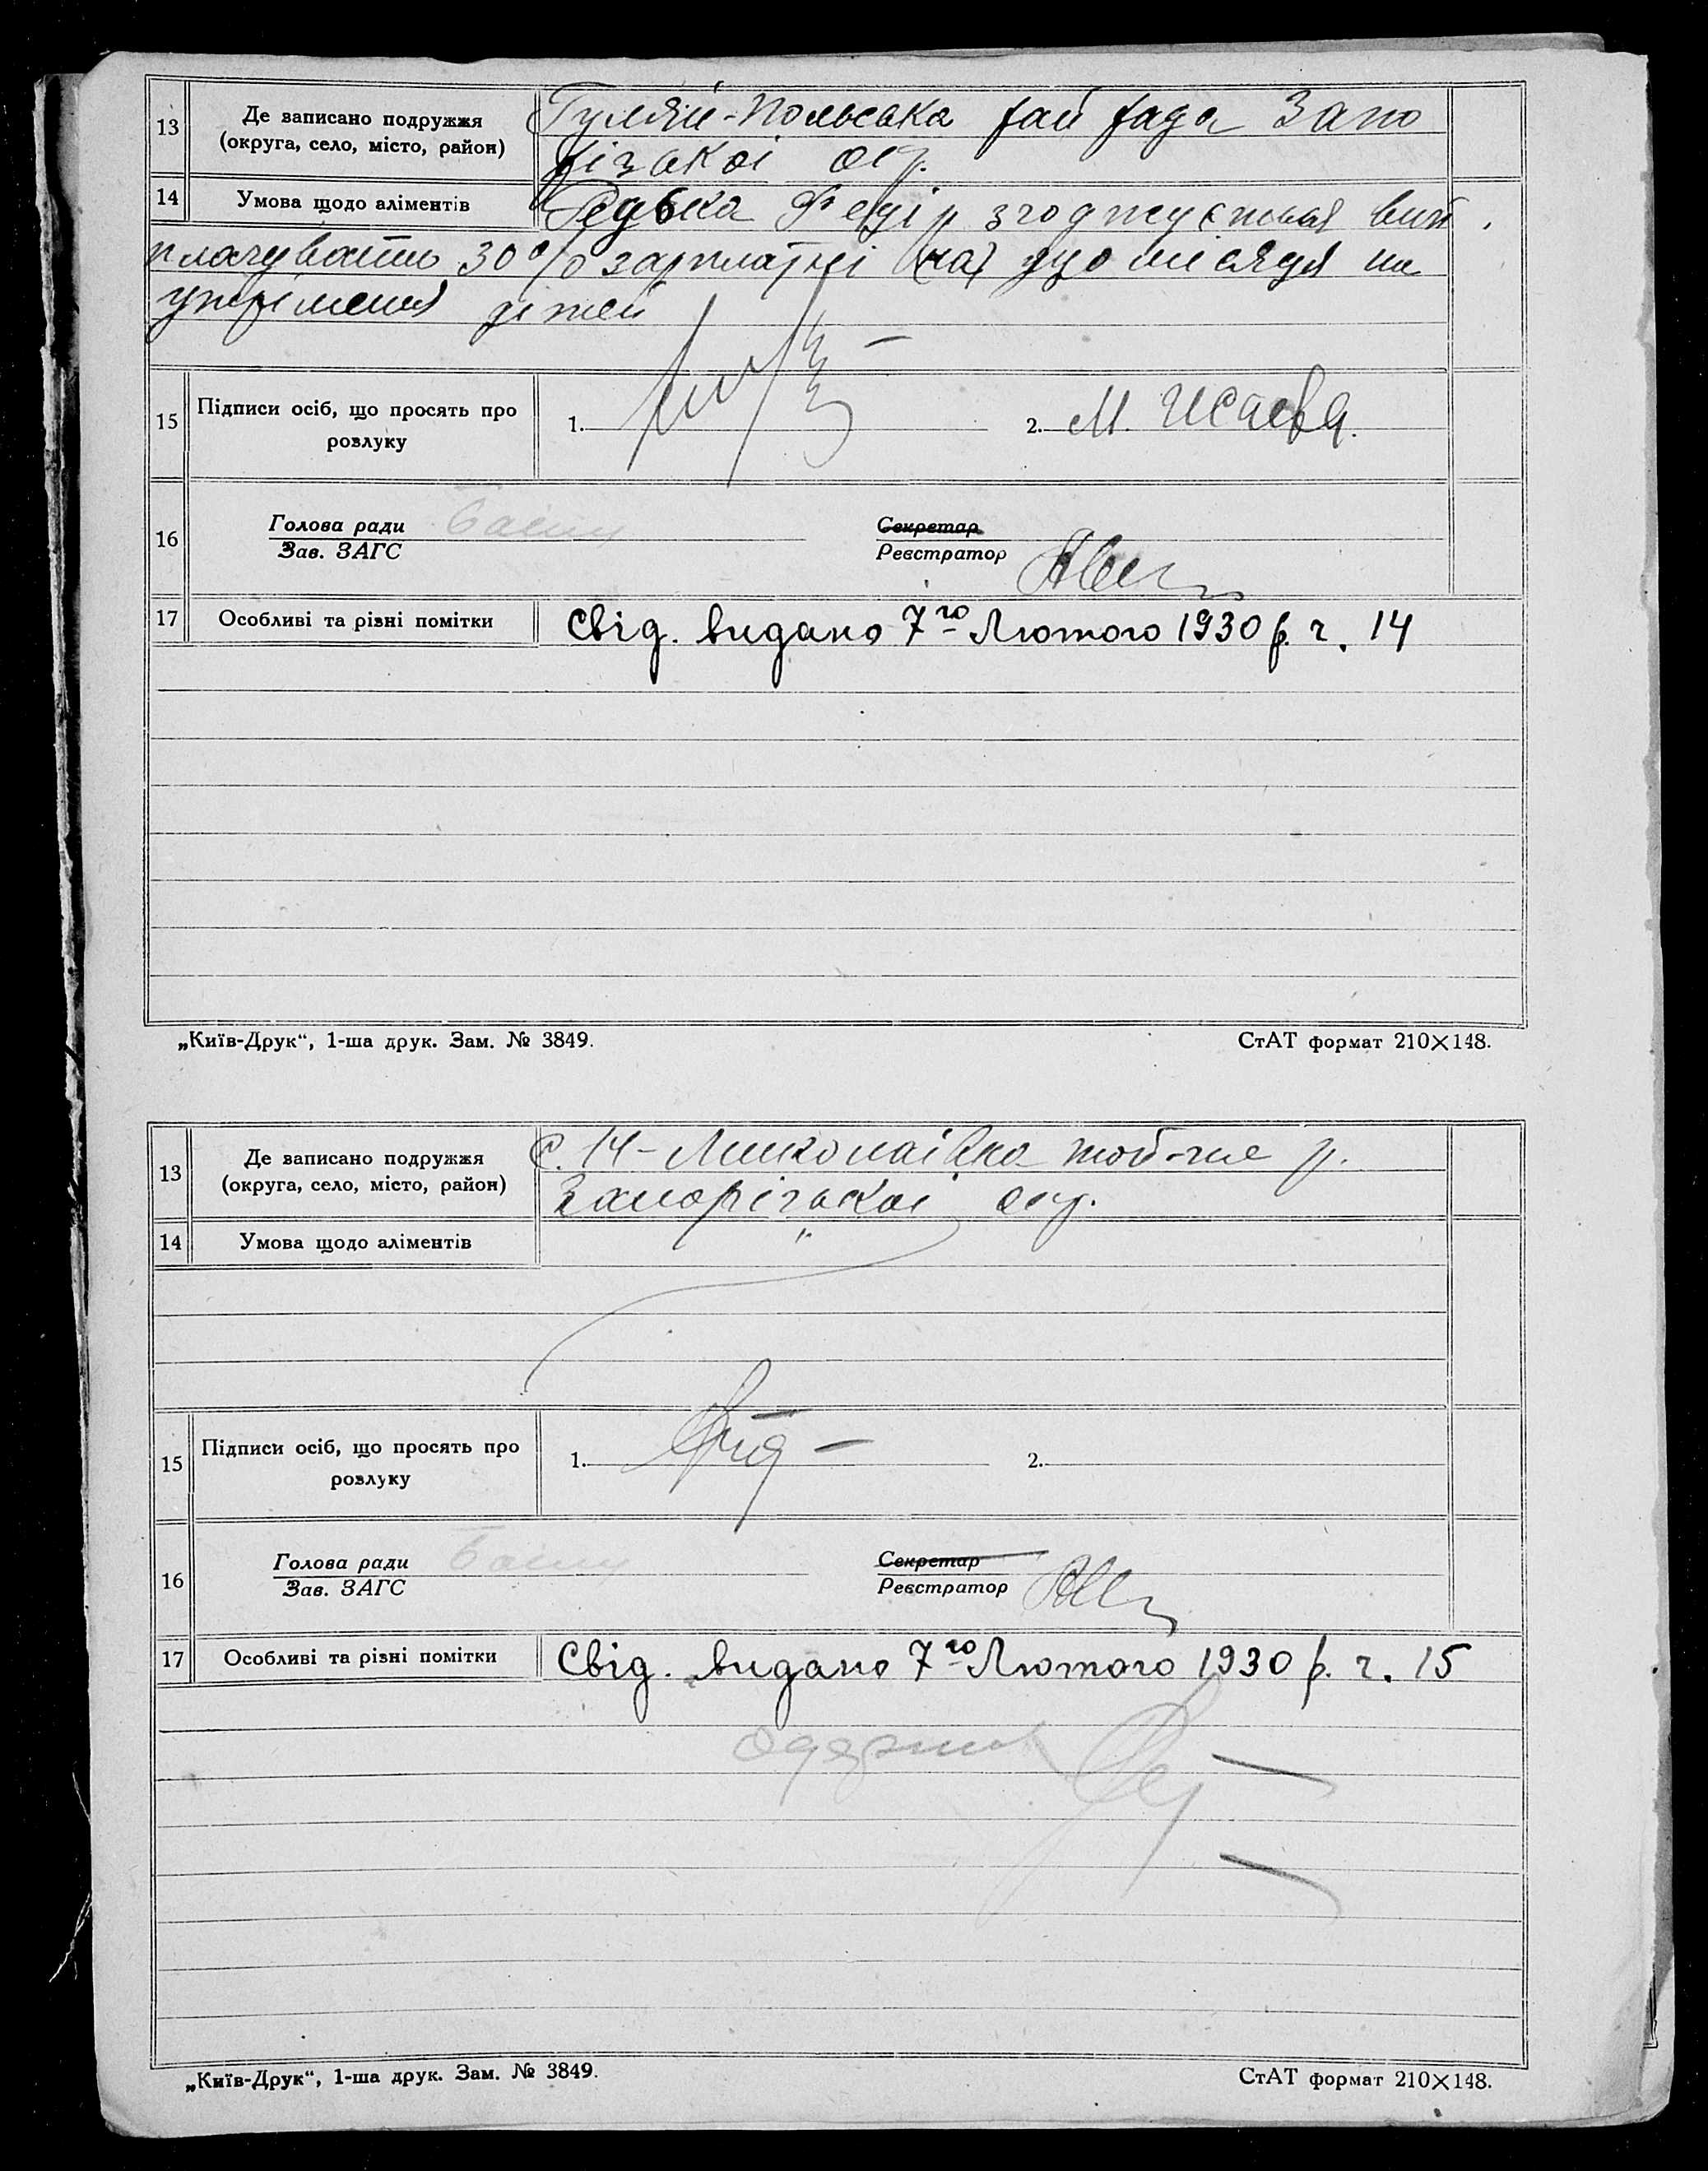 13 Де записано подружжя (округа, село, місто, район) Гуляй-Польська рай рада Запо
різької окр.
14 Умова щодо аліментів Редька Федір згоджується вип
плачувати 30% зарплатні що місяця на
утрімення дітей
15 Підписи осіб, що просять про розлуку 1. 2. М. Исаева.
16 Голова ради Секретар
Зав. ЗАГС Реєстратор
17 Особливі та різні помітки Свід. видано 7го Лютого 1930 р. ч. 14
„Київ-Друк“, 1-ша друк. Зам. № 3849. СтАТ формат 210×148.
13 Де записано подружжя (округа, село, місто, район) С. Н-Миколаівка р.
Запорізькоі окр.
14 Умова щодо аліментів "
15 Підписи осіб, що просять про розлуку 1. 2.
16 Голова ради Секретар
Зав. ЗАГС Реєстратор
17 Особливі та різні помітки Свід. видано 7го Лютого 1930 р. ч. 15
„Київ-Друк“, 1-ша друк. Зам. № 3849. СтАТ формат 210×148.